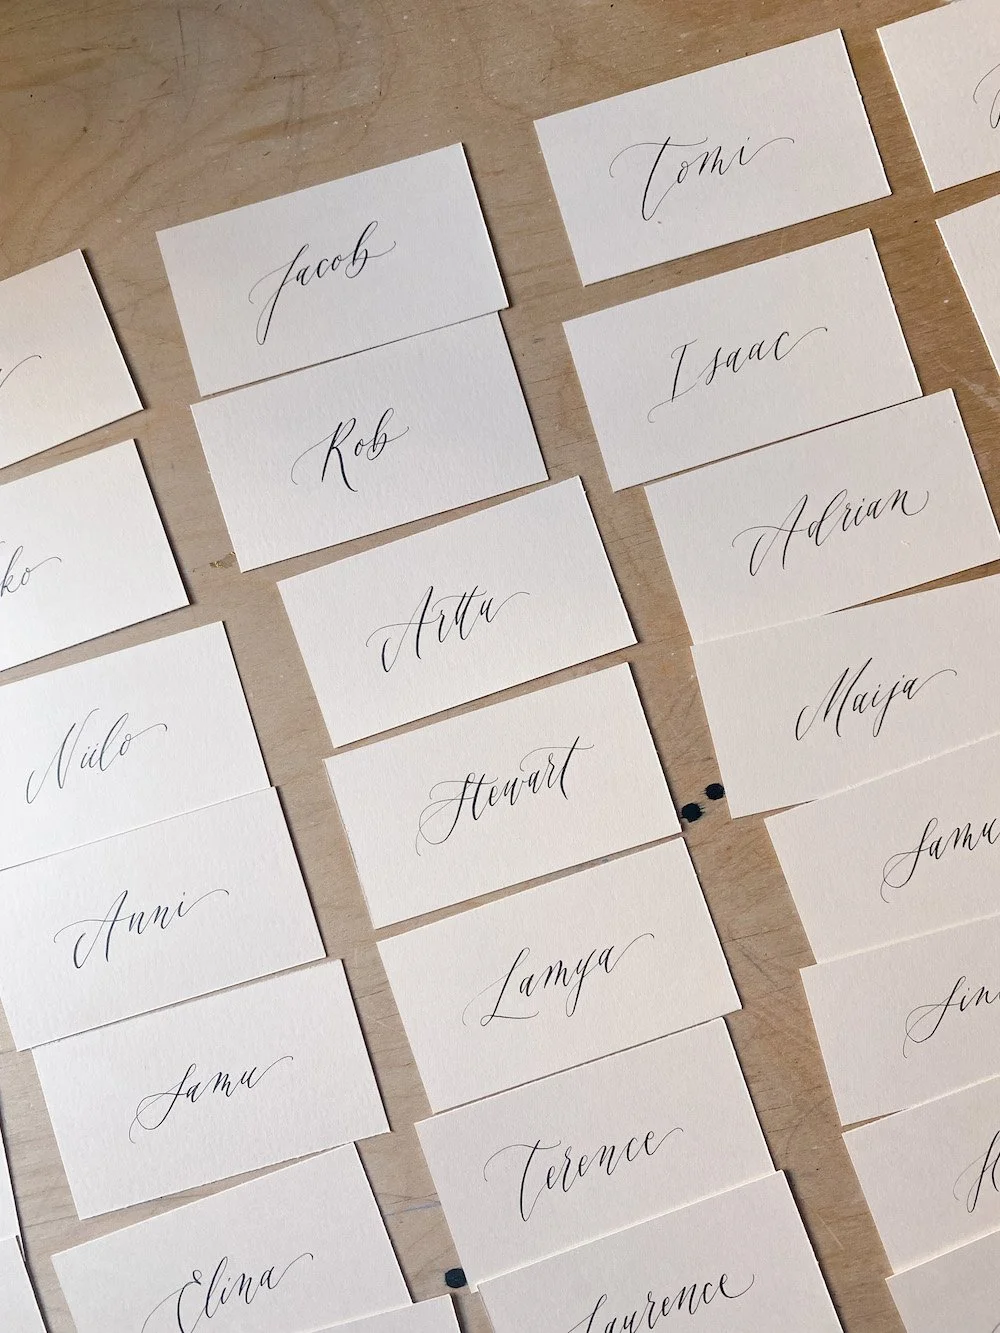 Tomi
Jacob
Isaac
Rob
Adrian
ko
Arttu
Maija
Niilo
Stewart
Samu
Anni
Lamya
Sin
Samu
Terence
Elina
Laurence